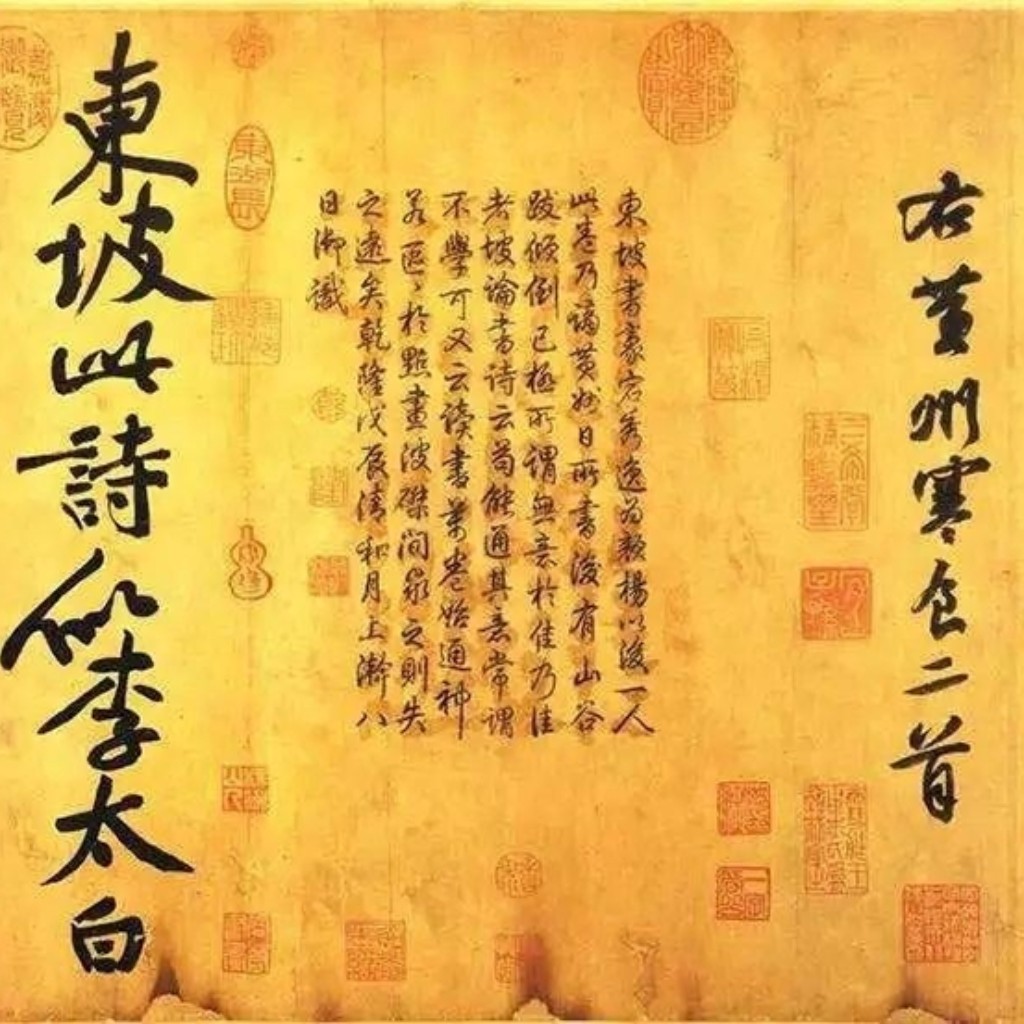 右黄州寒食二首
東坡書豪宕秀逸為顏楊以後一人
此卷乃謫黄州日所書後有山谷
跋傾倒已極所謂無意於佳乃佳
者坡論書詩云苟能通其意常謂
不學可又云讀書萬卷始通神
若區〻於點畫波磔間求之則失
之遠矣乾隆戊辰清和月上澣八
日御識
東坡此詩似李太白